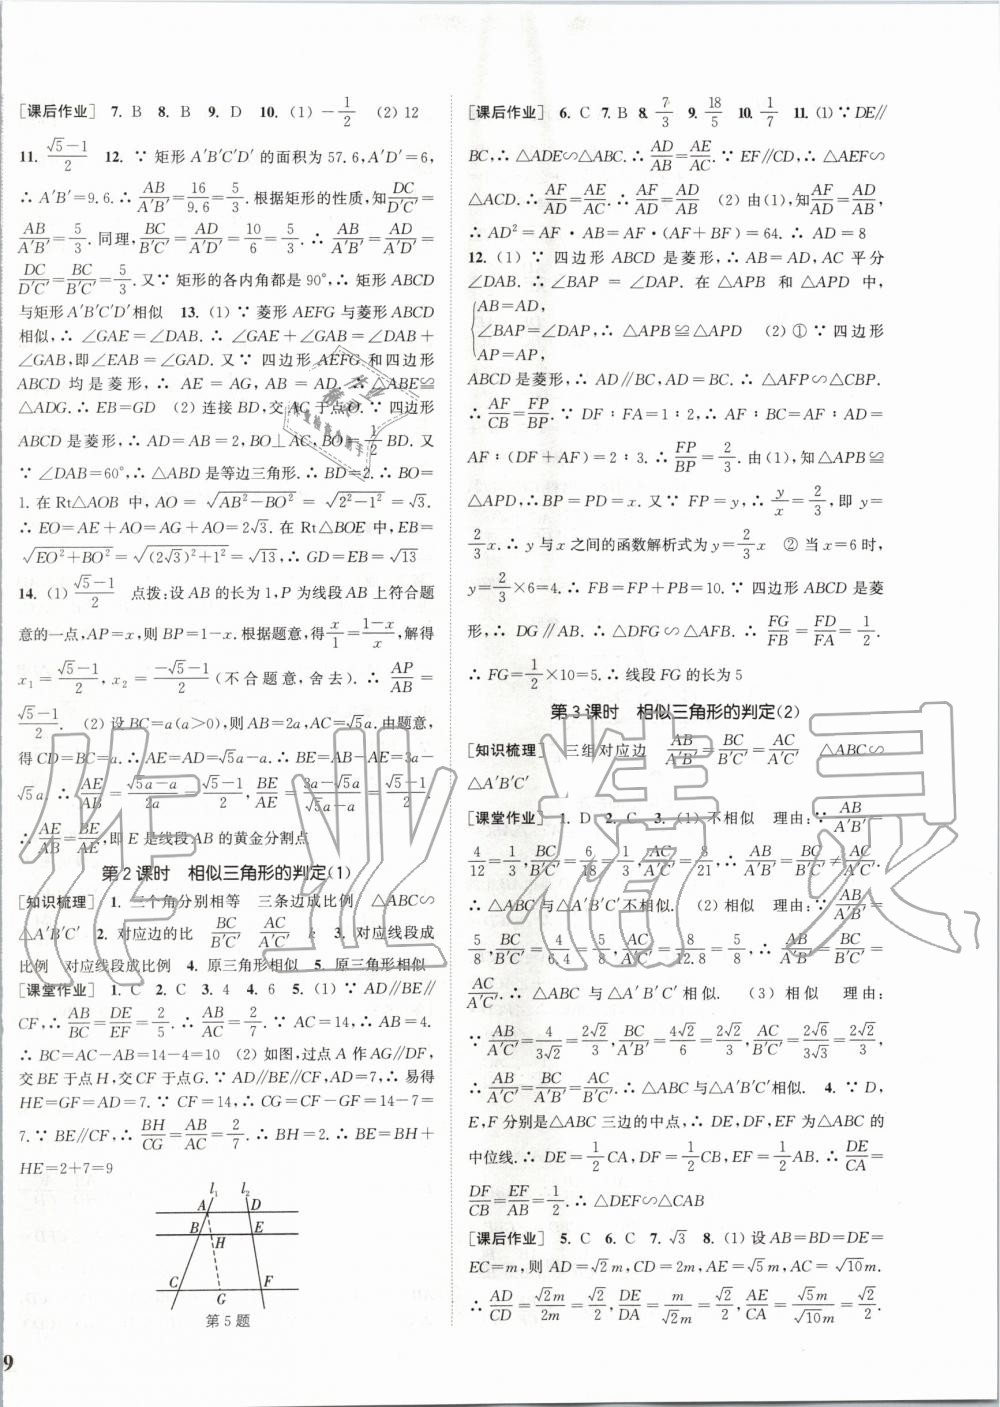 [课后作业] 7. B 8. B 9. D 10. (1) -1/2 (2) 12
11. (√5-1)/2 12. ∵ 矩形 A′B′C′D′ 的面积为 57.6, A′D′=6,
∴ A′B′=9.6. ∴ AB/A′B′=16/9.6=5/3. 根据矩形的性质,知 DC/D′C′=
AB/A′B′=5/3. 同理, BC/B′C′=AD/A′D′=10/6=5/3. ∴ AB/A′B′=AD/A′D′=
DC/D′C′=BC/B′C′=5/3. 又∵ 矩形的各内角都是90°,∴ 矩形 ABCD
与矩形 A′B′C′D′相似 13. (1) ∵ 菱形 AEFG 与菱形 ABCD
相似,∴ ∠GAE=∠DAB. ∴ ∠GAE+∠GAB=∠DAB+
∠GAB,即∠EAB=∠GAD. 又∵ 四边形 AEFG 和四边形
ABCD 均是菱形,∴ AE=AG, AB=AD. ∴ △ABE≌
△ADG. ∴ EB=GD (2) 连接 BD,交 AC 于点 O. ∵ 四边形
ABCD 是菱形,∴ AB=AD=2, BO⊥AC, BO=1/2 BD. 又
∵ ∠DAB=60°,∴ △ABD 是等边三角形. ∴ BD=2. ∴ BO=
1. 在 Rt△AOB 中, AO=√(AB²-BO²)=√(2²-1²)=√3.
∴ EO=AE+AO=AG+AO=2√3. 在 Rt△BOE 中, EB=
√(EO²+BO²)=√((2√3)²+1²)=√13,∴ GD=EB=√13
14. (1) (√5-1)/2 点拨:设 AB 的长为 1, P 为线段 AB 上符合题
意的一点, AP=x,则 BP=1-x. 根据题意,得 x/1=(1-x)/x,解得
x₁=(√5-1)/2, x₂=(-√5-1)/2 (不合题意,舍去). ∴ AP/AB=
(√5-1)/2. (2) 设 BC=a(a>0),则 AB=2a, AC=√5a. 由题意,
得 CD=BC=a. ∴ AE=AD=√5a-a. ∴ BE=AB-AE=3a-
√5a. ∴ AE/AB=(√5a-a)/2a=(√5-1)/2, BE/AE=(3a-√5a)/(√5a-a)=(√5-1)/2.
∴ AE/AB=BE/AE,即 E 是线段 AB 的黄金分割点
第 2 课时 相似三角形的判定(1)
[知识梳理] 1. 三个角分别相等 三条边成比例 △ABC∽
△A′B′C′ 2. 对应边的比 BC/B′C′ AC/A′C′ k 3. 对应线段成
比例 对应线段成比例 4. 原三角形相似 5. 原三角形相似
[课堂作业] 1. C 2. C 3. 4 4. 6 5. (1) ∵ AD∥BE∥
CF,∴ AB/BC=DE/EF=2/5. ∴ AB/AC=2/7. ∵ AC=14,∴ AB=4.
∴ BC=AC-AB=14-4=10 (2) 如图,过点 A 作 AG∥DF,
交 BE 于点 H,交 CF 于点G. ∵ AD∥BE∥CF, AD=7,∴ 易得
HE=GF=AD=7. ∵ CF=14,∴ CG=CF-GF=14-7=
7. ∵ BE∥CF,∴ BH/CG=AB/AC=2/7. ∴ BH=2. ∴ BE=BH+
HE=2+7=9
l₁ l₂
A D
B H E
C G F
第 5 题
9
[课后作业] 6. C 7. B 8. 7/3 9. 18/5 10. 1/7 11. (1) ∵ DE∥
BC,∴ △ADE∽△ABC. ∴ AD/AB=AE/AC. ∵ EF∥CD,∴ △AEF∽
△ACD. ∴ AF/AD=AE/AC. ∴ AF/AD=AD/AB (2) 由(1),知AF/AD=AD/AB,
∴ AD²=AF·AB=AF·(AF+BF)=64. ∴ AD=8
12. (1) ∵ 四边形 ABCD 是菱形,∴ AB=AD, AC 平分
∠DAB. ∴ ∠BAP=∠DAP. 在△APB 和△APD 中,
{AB=AD,
∠BAP=∠DAP,∴ △APB≌△APD (2) ① ∵ 四边形
AP=AP,
ABCD 是菱形,∴ AD∥BC, AD=BC. ∴ △AFP∽△CBP.
∴ AF/CB=FP/BP. ∵ DF∶FA=1∶2,∴ AF∶BC=AF∶AD=
AF∶(DF+AF)=2∶3. ∴ FP/BP=2/3. 由(1)知△APB≌
△APD,∴ BP=PD=x. 又∵ FP=y,∴ y/x=2/3,即 y=
2/3x. ∴ y 与 x 之间的函数解析式为 y=2/3x ② 当 x=6 时,
y=2/3×6=4. ∴ FB=FP+PB=10. ∵ 四边形 ABCD 是菱
形,∴ DG∥AB. ∴ △DFG∽△AFB. ∴ FG/FB=FD/FA=1/2.
∴ FG=1/2×10=5. ∴ 线段 FG 的长为 5
第 3 课时 相似三角形的判定(2)
[知识梳理] 三组对应边 AB/A′B′=BC/B′C′=AC/A′C′ △ABC∽
△A′B′C′
[课堂作业] 1. D 2. C 3. (1) 不相似 理由:∵ AB/A′B′=
4/12=1/3, BC/B′C′=6/18=1/3, AC/A′C′=8/21,∴ AB/A′B′=BC/B′C′≠AC/A′C′.
∴ △ABC 与△A′B′C′不相似. (2) 相似 理由:∵ AB/A′B′=
5/8, BC/B′C′=4/6.4=5/8, AC/A′C′=8/12.8=5/8,∴ AB/A′B′=BC/B′C′=
AC/A′C′. ∴ △ABC 与△A′B′C′相似. (3) 相似 理由:
∵ AB/A′C′=4/3√2=2√2/3, BC/A′B′=4√2/6=2√2/3, AC/B′C′=2√6/3√3=2√2/3,
∴ AB/A′C′=BC/A′B′=AC/B′C′. ∴ △ABC 与△A′B′C′相似. 4. ∵ D,
E, F 分别是△ABC 三边的中点,∴ DE, DF, EF 为△ABC 的
中位线. ∴ DE=1/2CA, DF=1/2CB, EF=1/2AB. ∴ DE/CA=
DF/CB=EF/AB=1/2. ∴ △DEF∽△CAB
[课后作业] 5. C 6. C 7. √3 8. (1) 设 AB=BD=DE=
EC=m,则 AD=√2m, CD=2m, AE=√5m, AC=√10m.
∴ AD/CD=√2m/2m=√2/2, DE/DA=m/√2m=√2/2, AE/AC=√5m/√10m=√2/2.
作业精灵